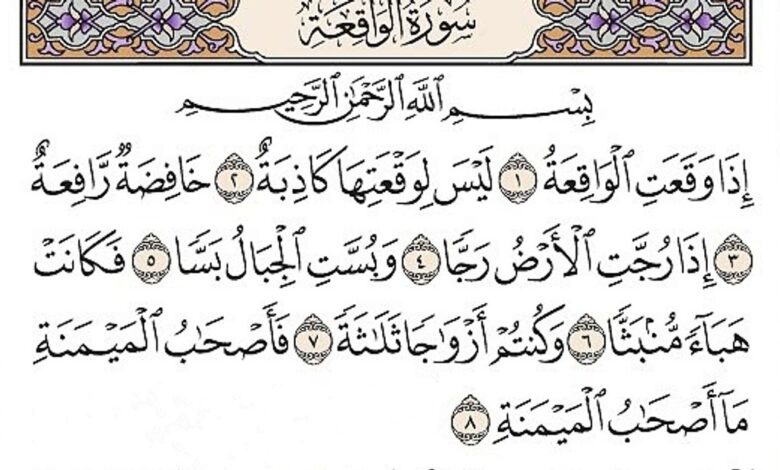 سُورَةُ الوَاقِعَةِ
بِسْمِ ٱللَّهِ ٱلرَّحْمَٰنِ ٱلرَّحِيمِ
إِذَا وَقَعَتِ ٱلْوَاقِعَةُ ١ لَيْسَ لِوَقْعَتِهَا كَاذِبَةٌ ٢ خَافِضَةٌ رَّافِعَةٌ
٣ إِذَا رُجَّتِ ٱلْأَرْضُ رَجًّا ٤ وَبُسَّتِ ٱلْجِبَالُ بَسًّا ٥ فَكَانَتْ
هَبَآءً مُّنۢبَثًّا ٦ وَكُنتُمْ أَزْوَٰجًا ثَلَٰثَةً ٧ فَأَصْحَٰبُ ٱلْمَيْمَنَةِ
مَآ أَصْحَٰبُ ٱلْمَيْمَنَةِ ٨